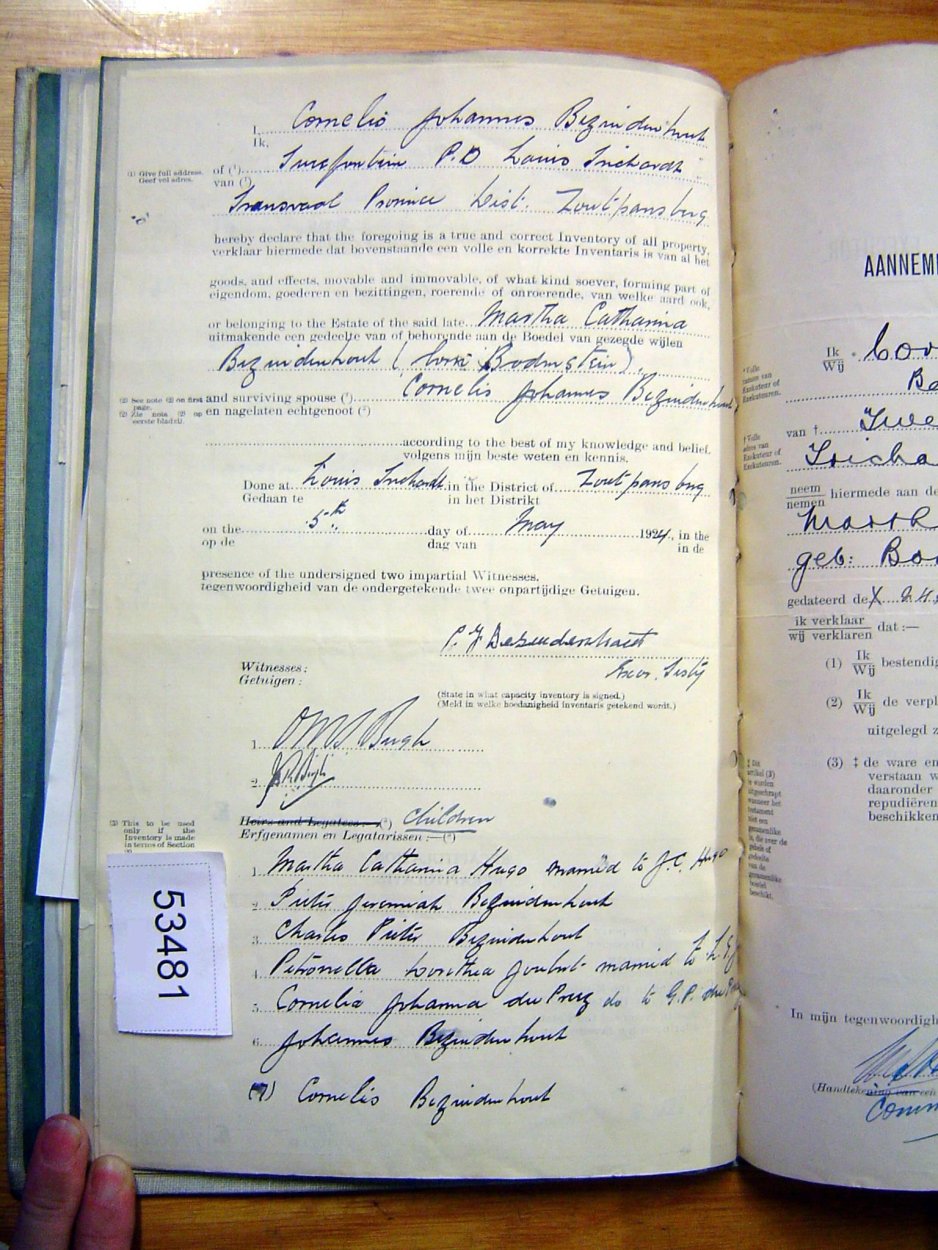 I, Cornelis Johannes Bezuidenhout
Ik,
(1) Give full address.
Geef vol adres.
of (1) P.O Louis Trichardt
van (1)
Transvaal Province Dist. Zoutpansberg
hereby declare that the foregoing is a true and correct Inventory of all property,
verklaar hiermede dat bovenstaande een volle en korrekte Inventaris is van al het
goods, and effects, movable and immovable, of what kind soever, forming part of
eigendom, goederen en bezittingen, roerende of onroerende, van welke aard ook,
or belonging to the Estate of the said late Martha Catharina
uitmakende een gedeelte van of behorende aan de Boedel van gezegde wijlen
Bezuidenhout (born Bodenstein),
(2) See note (2) on first
page.
(2) Zie nota (2) op
eerste bladzij.
and surviving spouse (2) Cornelis Johannes Bezuidenhout
en nagelaten echtgenoot (2)
according to the best of my knowledge and belief.
volgens mijn beste weten en kennis.
Done at Louis Trichardt in the District of Zoutpansberg
Gedaan te in het Distrikt
on the 5th day of May 1924, in the
op de dag van in de
presence of the undersigned two impartial Witnesses.
tegenwoordigheid van de ondergetekende twee onpartijdige Getuigen.
Witnesses:
Getuigen:
Exor. Testy
(State in what capacity inventory is signed.)
(Meld in welke hoedanigheid inventaris getekend wordt.)
1.
2.
(3) This to be used
only if the
Inventory is made
in terms of Section
Heirs and Legatees:—(3) Children
Erfgenamen en Legatarissen:—(3)
1. Martha Catharina Hugo married to J.C. Hugo
2. Pieter Jeremiah Bezuidenhout
3. Charles Pieter Bezuidenhout
4. Petronella Dorothea Joubert married to
5. Cornelia Johanna du Preez do to G.P. du
6. Johannes Bezuidenhout
(7) Cornelis Bezuidenhout
53481
AANNEM
Ik
Wij
van †
neem
nemen hiermede aan de
geb: Bo
gedateerd de
ik verklaar
wij verklaren dat:—
(1) Ik
Wij bestendig
(2) Ik
Wij de verpl
uitgelegd z
(3) ‡ de ware en
verstaan w
daaronder
repudiëren
beschikken
In mijn tegenwoordigh
(Handtekening van een
Comm